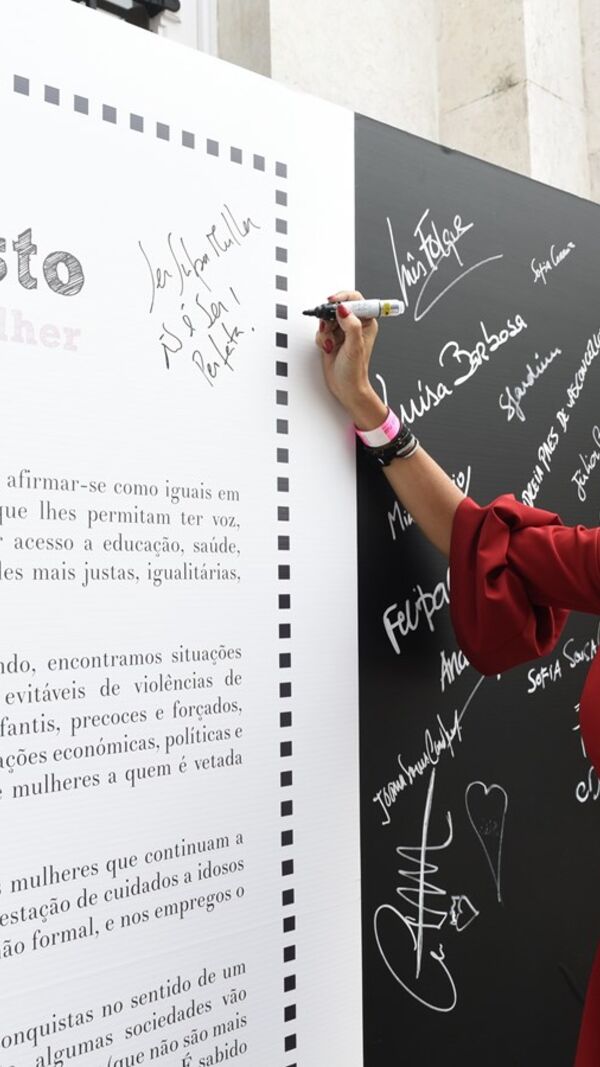 sto
lher
Ser Super Mulher
Ñ é Ser!
Perfeita!
afirmar-se como iguais em
que lhes permitam ter voz,
r acesso a educação, saúde,
les mais justas, igualitárias,
ndo, encontramos situações
evitáveis de violências de
fantis, precoces e forçados,
ações económicas, políticas e
e mulheres a quem é vetada
s mulheres que continuam a
estação de cuidados a idosos
ão formal, e nos empregos o
onquistas no sentido de um
algumas sociedades vão
(que não são mais
É sabido
Inês Folque
Sofia
Luísa Barbosa
SJardim
PAES DE VASCONCELOS
Júlia
Felipa
Ana
SOFIA SOUSA
Joana